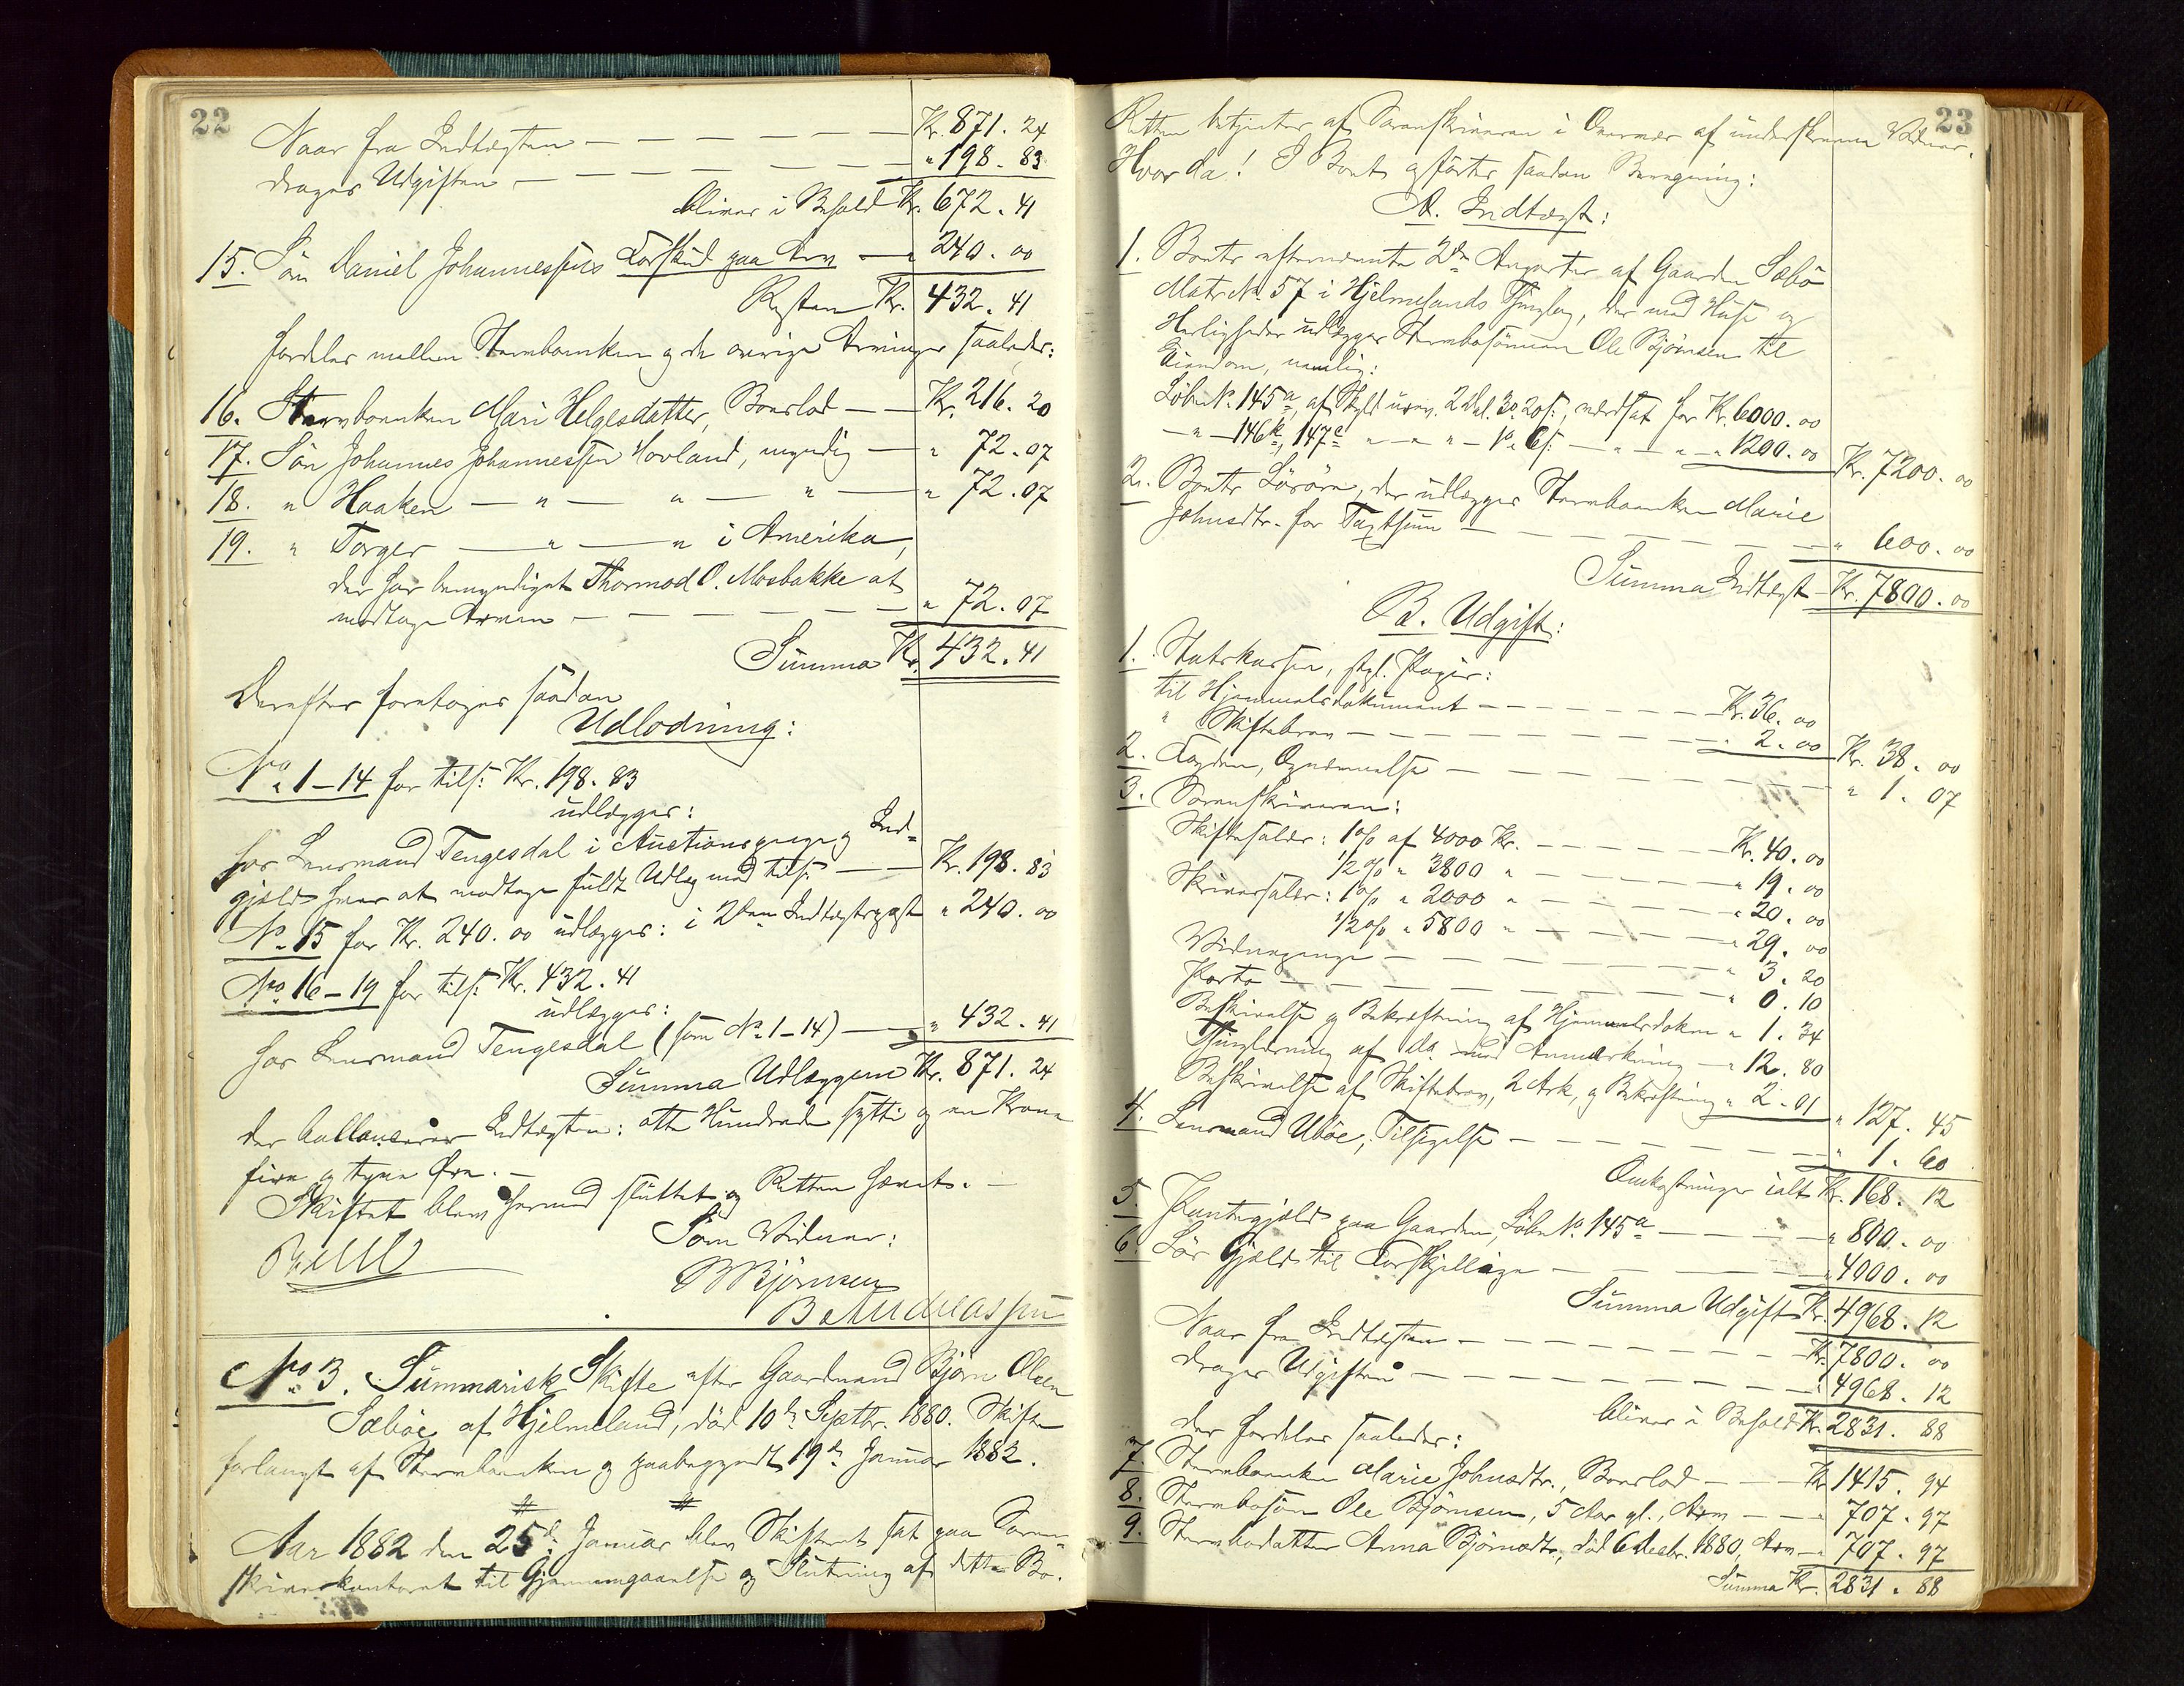 22
Naar fra Indtægten — — — — — Kr. 871. 24
drages Udgiften — — — — — " 198. 83
bliver i Behold Kr. 672. 41
15. Søn Daniel Johannessens Forskud paa Arv — " 240. 00
Resten Kr. 432. 41
fordeles mellem Stervboenken og de øvrige Arvinger saaledes:
16. Stervboenken Mari Helgesdatter, Boeslod — — Kr. 216. 20
17. Søn Johannes Johannessen Hovland, myndig — " 72. 07
18. " Haaken — " — " — " — " 72. 07
19. " Torger — " — " i Amerika,
der har bemyndiget Thormod O. Mosbakke at
modtage Arven — — — — — " 72. 07
Summa Kr. 432. 41
Derefter foretoges saadan
Udlodning:
No. 1-14 for tils: Kr. 198. 83
udlægges:
hos Lensmand Tengesdal i Auctionspenge og Ind=
gjæld hver at modtage fuldt Udlæg med tils: — — Kr. 198. 83
No. 15 for Kr. 240. 00 udlægges: i 2den Indtægtspost " 240. 00
No. 16-19 for tils: Kr. 432. 41
udlægges:
hos Lensmand Tengesdal (som No. 1-14) — — " 432. 41
Summa Udlæggene Kr. 871. 24
der ballancerer Indtægten: otte Hundrede sytti og en Krone
fire og tyve Øre. —
Skiftet blev hermed sluttet og Retten hævet. —
Som Vidner:
BBjørnsen
B. Andreassen
No. 3. Summarisk Skifte efter Gaardmand Bjørn Olsen
Sæbøe af Hjelmeland, død 10de Septbr. 1880. Skifte
forlangt af Stervboenken og paabegyndt 19de Januar 1882.
Aar 1882 den 25de Januar blev Skifteret sat paa Soren=
skriverkontoret til Gjennemgaaelse og Slutning af dette Bo.
23
Retten betjentes af Sorenskriveren i Overvær af underskrevne Vidner.
Hvor da! I Boet opførtes saadan Beregning:
A. Indtægt:
1. Boets efternævnte 2de Anparter af Gaarden Sæbø
Matr. No. 57 i Hjelmelands Thinglag, der med Huse og
Herligheder udlægges Stervbosønnen Ole Bjørnsen til
Eiendom, nemlig:
Løbe No. 145a, af Skyld urev. 2 Dal. 3 o. 20 s:, værdsat for Kr. 6000. 00
— " — 146k, 147e " — " — " — 1 o. 6 s: — " — " — " 1200. 00 Kr. 7200. 00
2. Boets Løsøre, der udlægges Stervboenken Marie
Johnsdtr. for Taxtsum — — — — — " 600. 00
Summa Indtægt — Kr. 7800. 00
B. Udgift:
1. Statskassen, stpl. Papir:
til Hjemmelsdokument — — — — — Kr. 36. 00
" Skiftebrev — — — — — " 2. 00 Kr. 38. 00
2. Fogden, Opnævnelse — — — — — " 1. 07
3. Sorenskriveren:
Skiftesalær: 1 o/o af 4000 Kr. — — — Kr. 40. 00
1/2 o/o " 3800 " — — — " 19. 00
Skriversalær: 1 o/o " 2000 " — — — " 20. 00
1/2 o/o " 5800 " — — — " 29. 00
Vidnepenge — — — — — " 3. 20
Porto — — — — — " 0. 10
Beskrivelse og Bekræftning af Hjemmelsdokum " 1. 34
Thinglæsning af do. med Anmærkning — " 12. 80
Beskrivelse af Skiftebrev, 2 Ark, og Bekræftning " 2. 01 " 127. 45
4. Lensmand Ubøe, Tilsigelse — — — — — " 1. 60
Omkostninger ialt Kr. 168. 12
5. Pantegjæld paa Gaarden, Løbe No. 145a — — — " 800. 00
6. Løs Gjæld til Forskjellige — — — — — " 4000. 00
Summa Udgift Kr. 4968. 12
Naar fra Indtægten — — — — — Kr. 7800. 00
drages Udgiften — — — — — " 4968. 12
bliver i Behold Kr. 2831. 88
der fordeles saaledes:
7. Stervboenken Marie Johnsdtr., Boeslod — — Kr. 1415. 94
8. Stervbosøn Ole Bjørnsen, 5 Aar gl., Arv — — " 707. 97
9. Stervbodatter Anna Bjørnsdtr., død 6 Decbr. 1880, Arv — " 707. 97
Summa Kr. 2831. 88